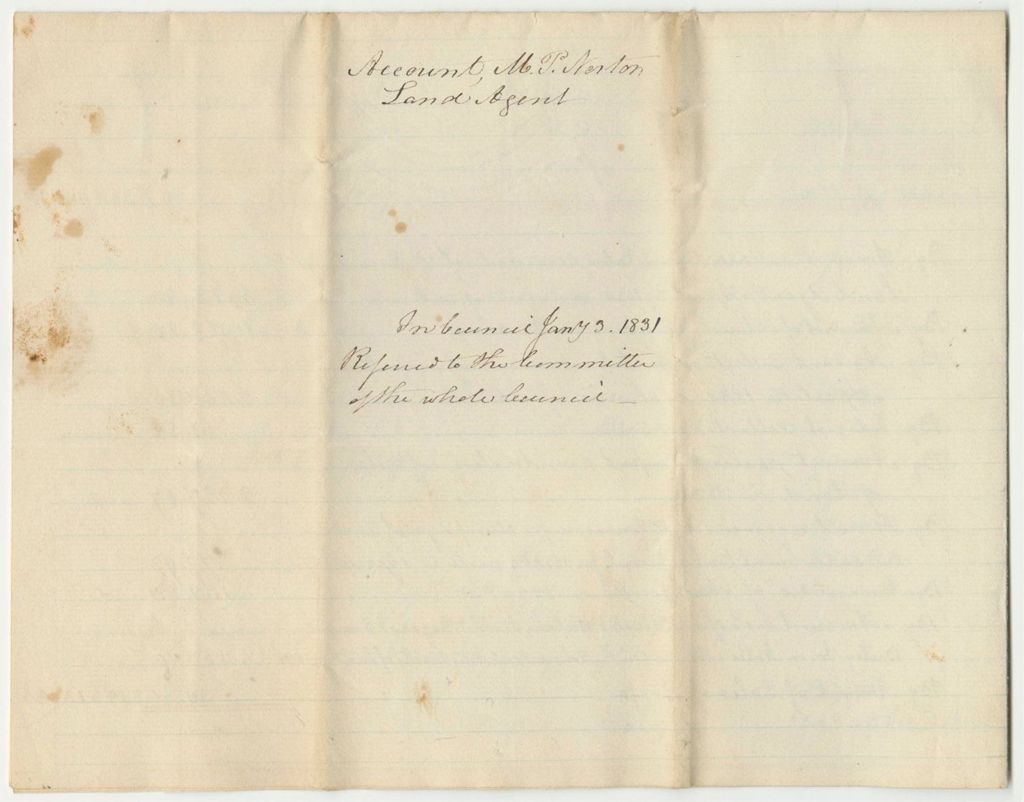 Account, M. P. Norton
Land Agent
In Council Jany 3. 1831
Referred to the Committee
of the whole Council